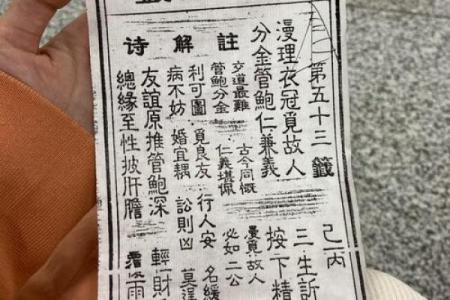 第五十三籤 己丙
漫理衣冠覓故人 三生訴
分金管鮑仁兼義 按下精
註解诗
交道最難 古今同慨 漫覓故人
管鮑分金 仁義堪佩 必如二公
利可圖 覓良友 行人安 名緩
病不妨 婚宜耦 訟則凶 莫
友誼原推管鮑深 輕財
總緣至性披肝膽 雨